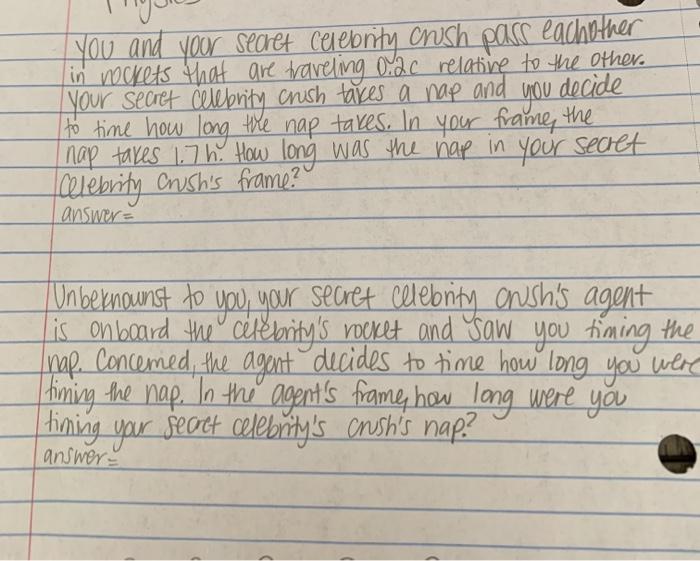 Physics
you and your secret celebrity crush pass eachother
in rockets that are traveling 0.2c relative to the other.
your secret celebrity crush takes a nap and you decide
to time how long the nap takes. In your frame, the
nap takes 1.7 h. How long was the nap in your secret
celebrity crush's frame?
answer=
Unbeknownst to you, your secret celebrity crush's agent
is onboard the celebrity's rocket and saw you timing the
nap. Concerned, the agent decides to time how long you were
timing the nap. In the agent's frame, how long were you
timing your secret celebrity's crush's nap?
answer=